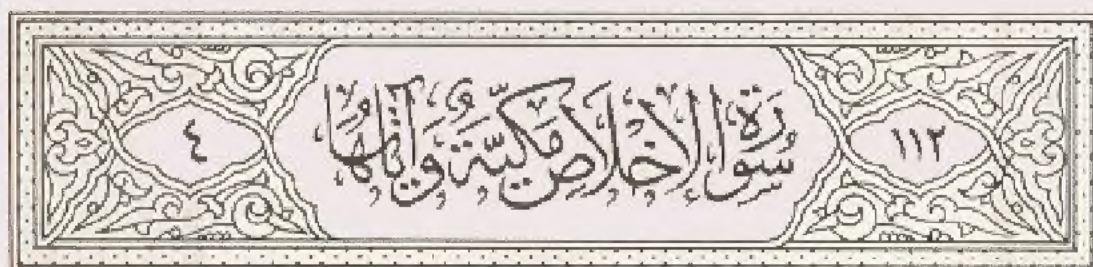 ١١٢ سُورَةُ الإِخْلَاصِ مَكِّيَّةٌ وَآيَاتُهَا ٤